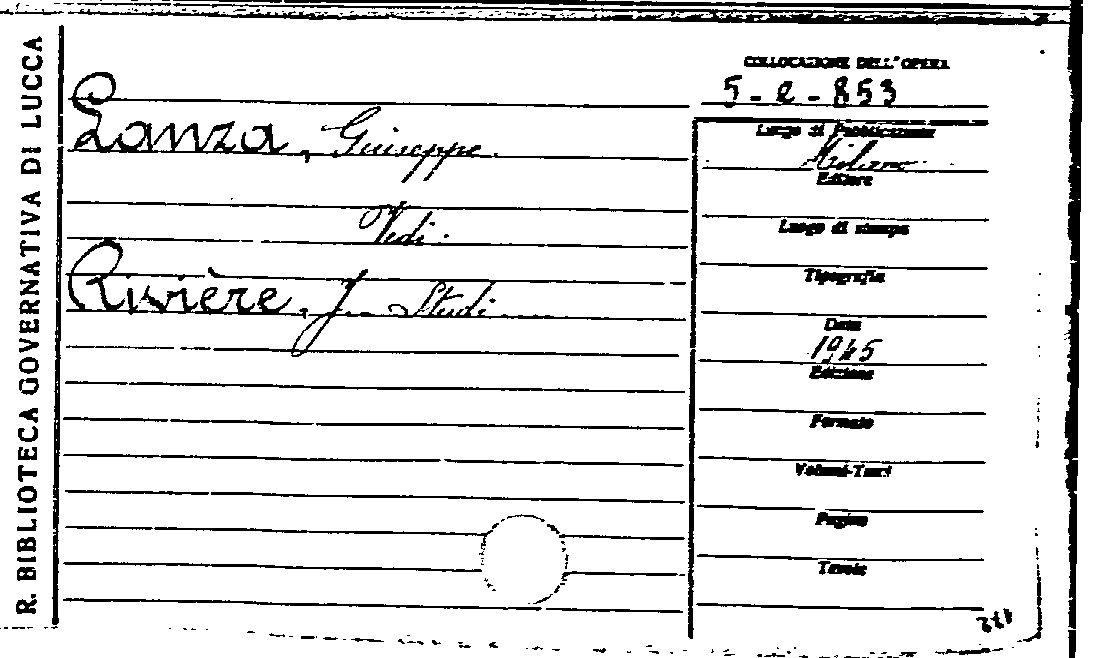 R. BIBLIOTECA GOVERNATIVA DI LUCCA
Lanza, Giuseppe.
Vedi.
Rivière, J. Studi
COLLOCAZIONE DELL'OPERA
5-e-853
Luogo di Pubblicazione
Milano
Editore
Luogo di stampa
Tipografia
Data
1945
Edizione
Formato
Volumi-Tomi
Pagine
Tavole